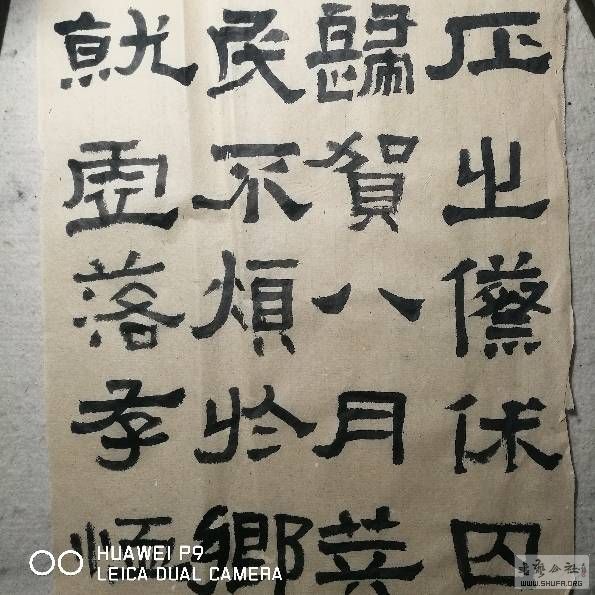 正之休囚
歸賀八月筭
民不煩於鄉
就虛落存恤
HUAWEI P9
LEICA DUAL CAMERA
WWW.SHUFA.ORG